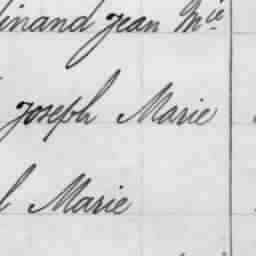 inand Jean M.ie
Joseph Marie
l Marie